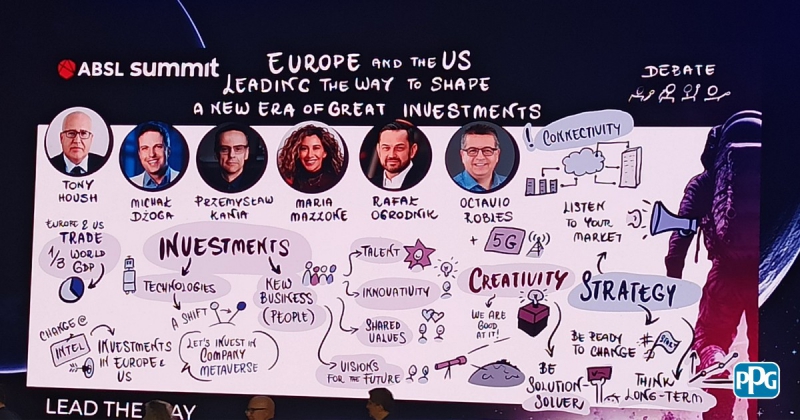 ABSL summit
EUROPE AND THE US
LEADING THE WAY TO SHAPE
A NEW ERA OF GREAT INVESTMENTS
DEBATE
TONY
HOUSH
MICHAŁ
DŻOGA
PRZEMYSŁAW
KANIA
MARIA
MAZZONE
RAFAŁ
OGRODNIK
OCTAVIO
ROBLES
! CONNECTIVITY
LISTEN
TO YOUR
MARKET
+ 5G
EUROPE & US
TRADE
1/3 WORLD
GDP
CHANGE @
INTEL
INVESTMENTS
IN EUROPE &
US
INVESTMENTS
TECHNOLOGIES
A SHIFT
LET'S INVEST IN
COMPANY
METAVERSE
NEW
BUSINESS
(PEOPLE)
TALENT
INNOVATIVITY
SHARED
VALUES
VISIONS
FOR THE FUTURE
CREATIVITY
WE ARE
GOOD
AT IT!
BE
SOLUTION-
SOLVER
STRATEGY
BE READY
TO CHANGE
START
THINK
LONG-TERM
LEAD THE WAY
PPG